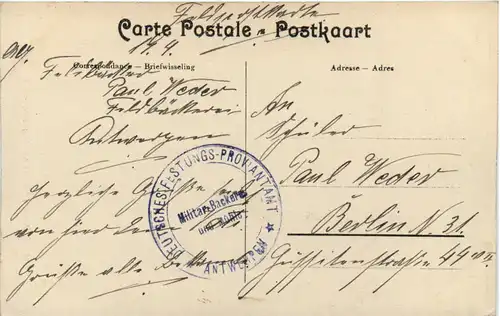 Feldpostkarte
Carte Postale – Postkaart
Correspondance — Briefwisseling
Adresse – Adres
19.4.
Feldbäcker
Paul Weder
Feldbäckerei
Antwerpen
Herzliche Grüße
von hier
Grüße alle
DEUTSCHES FESTUNGS-PROVIANTAMT
Militär-Bäckerei
und
ANTWERPEN
An
Schüler
Paul Weder
Berlin N. 31.
Gußfitenstraße 44